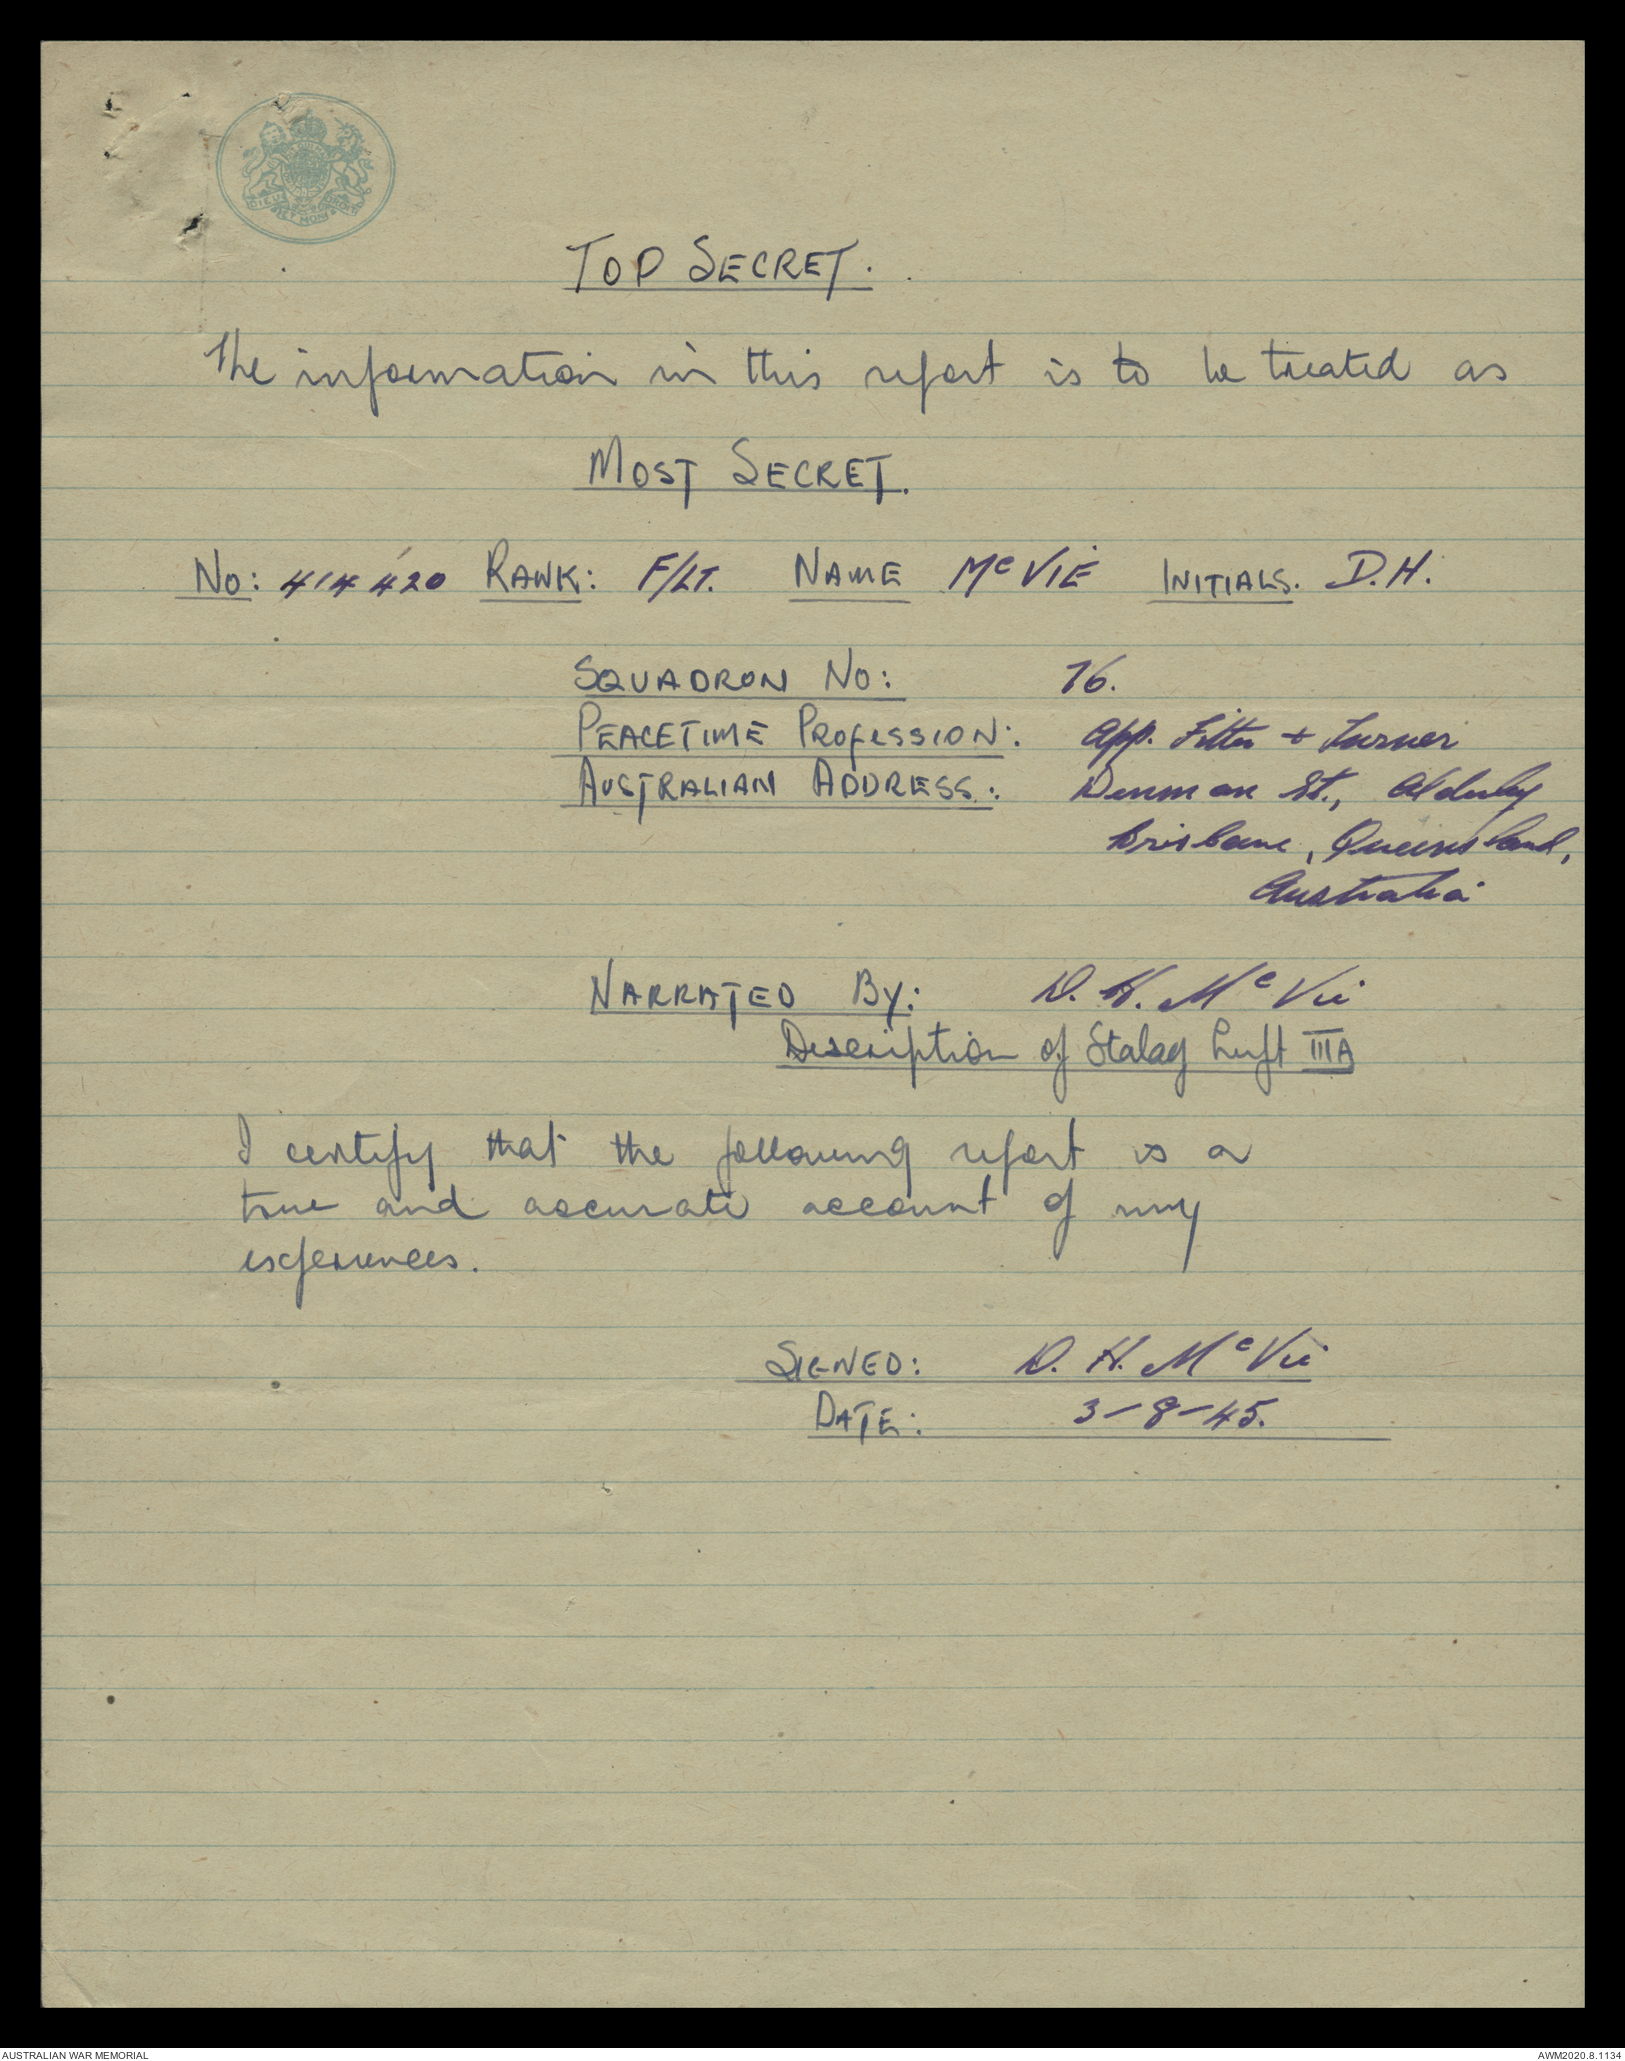 DIEU ET MON DROIT
TOP SECRET.
The information in this report is to be treated as
MOST SECRET.
No: 414420 RANK: F/LT. NAME McVIE INITIALS. D.H.
SQUADRON No: 76.
PEACETIME PROFESSION: App. Fitter + Turner
AUSTRALIAN ADDRESS: Denman St., Alderley
Brisbane, Queensland,
Australia
NARRATED By: D. H. McVie
Description of Stalag Luft IIIA
I certify that the following report is a
true and accurate account of my
experiences.
SIGNED: D. H. McVie
DATE: 3-8-45.
AUSTRALIAN WAR MEMORIAL AWM2020.8.1134